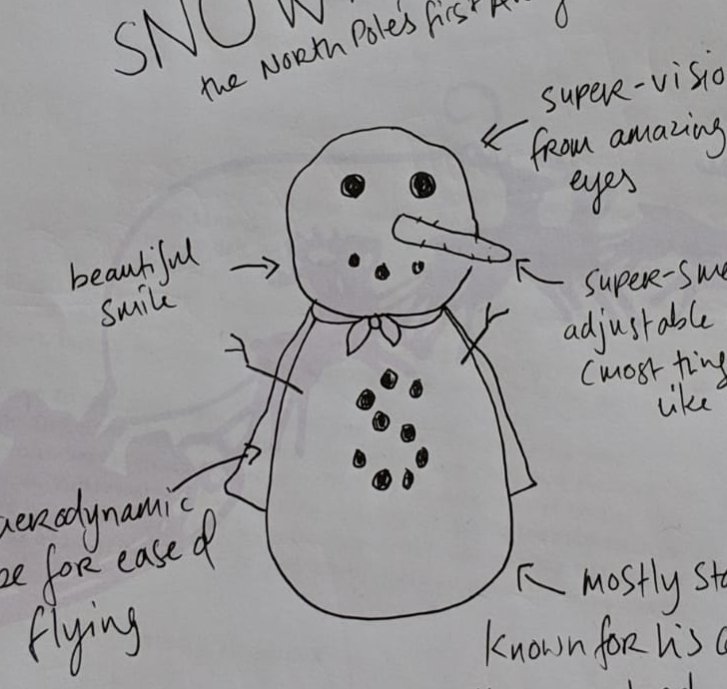 SNOW
the North Pole's first
super-visio
from amazing
eyes
beautiful
smile
super-sme
adjustable
(most
like
aerodynamic
pe for ease of
flying
mostly sta
known for his